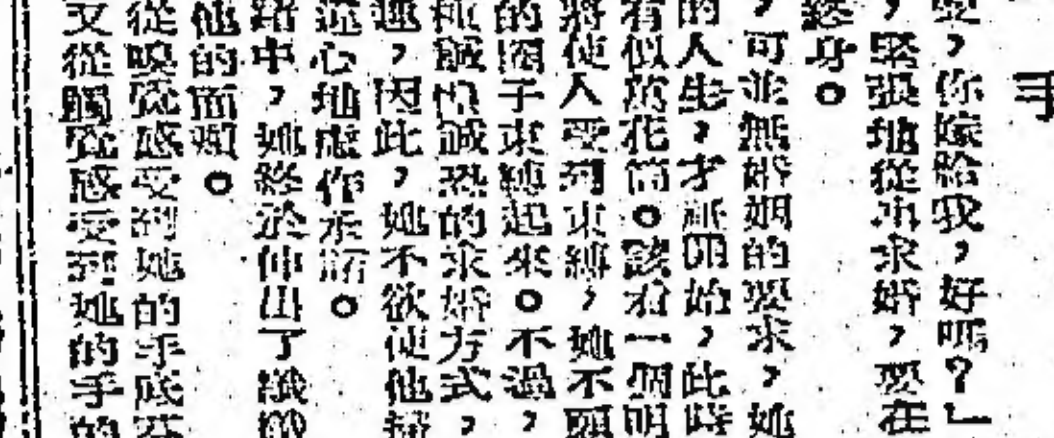 手
愛，你嫁給我，好嗎？」
，緊張地從求婚，要在
終身。
，可並無婚姻的要求，她
的人生，才祇開始，此時
有似萬花筒。該有一個明
將使人受到束縛，她不願
的圈子束縛起來。不過，
種誠惶誠恐的求婚方式，
趣，因此，她不欲使他掃
違心地虛作承諾。
路中，她終於伸出了纖纖
他的面頰。
從嗅覺感受到她的手底芬
又從觸覺感受到她的手的